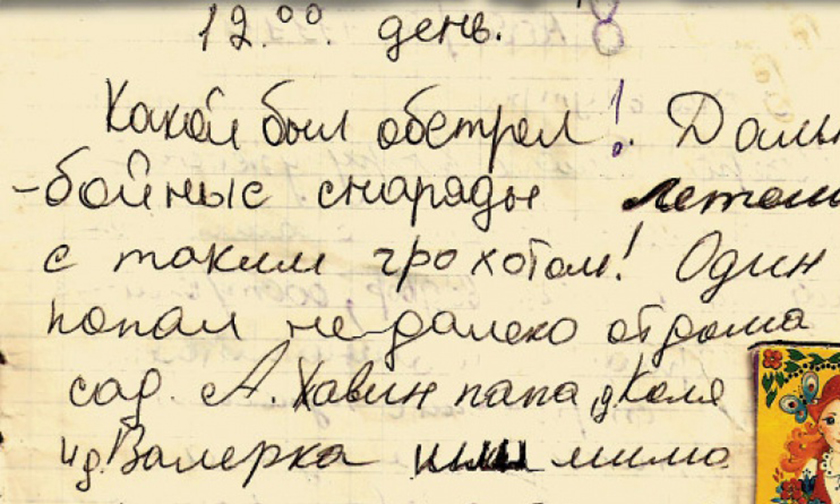 12.ºº. день.
Какой был обстрел! Даль
-бойные снаряды летели
с таким грохотом! Один
попал не-далеко от дома
сад. А. Хавин папа, д Коля
и д. Валерка шли мимо